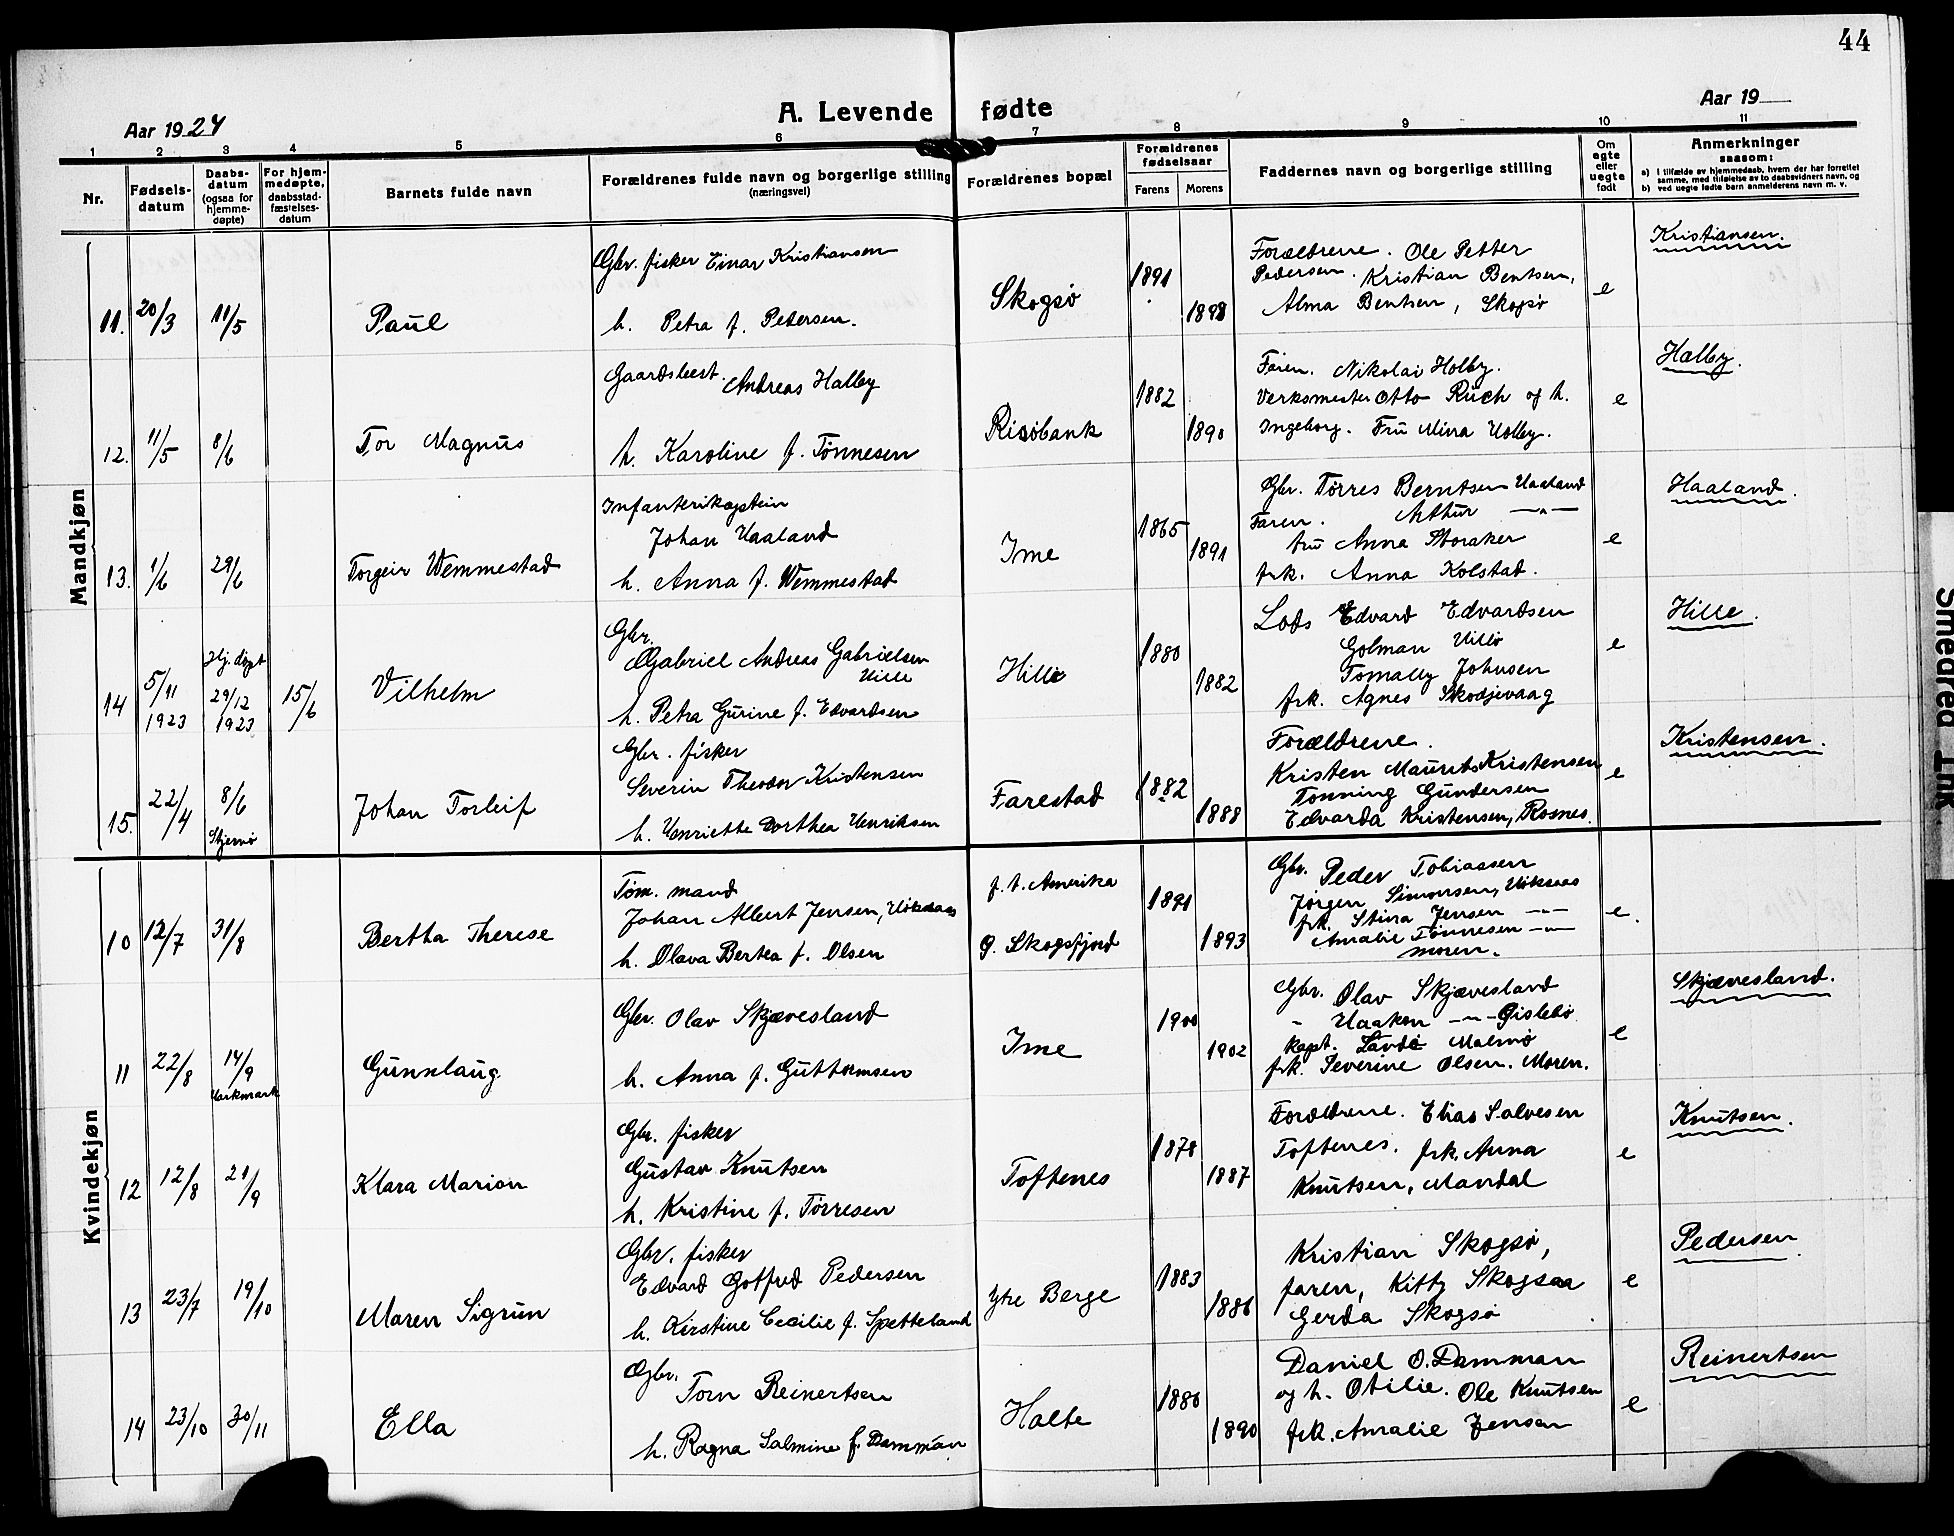 44
Aar 1924
A. Levende fødte
Aar 19
1 2 3 4 5 6 7 8 9 10 11
Nr.
Fødsels-
datum
Daabs-
datum
(ogsaa for
hjemme-
døpte)
For hjem-
medøpte,
daabsstad-
fæstelses-
datum
Barnets fulde navn
Forældrenes fulde navn og borgerlige stilling
(næringsvei)
Forældrenes bopæl
Forældrenes
fødselsaar
Farens
Morens
Faddernes navn og borgerlige stilling
Om
egte
eller
uegte
født
Anmerkninger
saasom:
a) I tilfælde av hjemmedaab, hvem der har forrettet
samme, med tilføielse av to daabsvidners navn, og
b) ved uegte fødte barn anmelderens navn m. v.
Mandkjøn
11. 20/3 11/5
Paul
Gbr. fisker Einar Kristiansen
h. Petra f. Petersen.
Skogsø
1891
1898
Forældrene. Ole Petter
Pedersen. Kristian Bentsen,
Alma Bentsen, Skogsø
e
Kristiansen.
12. 11/5 8/6
Tor Magnus
Gaardsbest. Andreas Halby
h. Karoline f. Tønnesen
Risøbank
1882
1890
Faren. Nikolai Holby.
Verksmester Otto Ruch og h.
Ingeborg. Fru Mina Holby.
e
Halby.
13. 1/6 29/6
Torgeir Wemmestad
Infanterikaptein
Johan Haaland
h. Anna f. Wemmestad
Ime
1865
1891
Gbr. Tørres Berntsen Haaland
Faren. Arthur —"—
fru Anna Storaker
frk. Anna Kolstad.
e
Haaland.
14 5/11 1923
Hj. døpt
29/12
1923
15/6
Vilhelm
Gbr.
Gabriel Andreas Gabrielsen
Hille
h. Petra Gurine f. Edvardsen
Hille
1880
1882
Lods Edvard Edvardsen
Golman Hille
Tomally Johnsen
frk. Agnes Skodjevaag
e
Hille.
15. 22/4 8/6
Skjernø
Johan Torleif
Gbr. fisker
Severin Theodor Kristensen
h. Henriette Dorthea Henriksen
Farestad
1882
1888
Forældrene.
Kristen Maurits Kristensen
Tønning Gundersen
Edvarda Kristensen, Rosnes.
e
Kristensen.
Kvindekjøn
10 12/7 31/8
Bertha Therese
Tøm. mand
Johan Albert Jensen,
h. Olava Bertea f. Olsen
f. t. Amerika
Ø. Skogsfjord
1891
1893
Gbr. Peder Tobiassen
Jørgen Simonsen,
frk. Stina Jensen —"—
Amalie Tønnesen —"—
moren.
e.
11 22/8 14/9
Harkmark
Gunnlaug
Gbr. Olav Skjævesland
h. Anna f. Guttormsen
Ime
1900
1902
Gbr. Olav Skjævesland
" Haakon —"— Gislebø
kapt. Lande Malmø
frk. Severine Olsen. Moren.
e
Skjævesland.
12 12/8 21/9
Klara Marion
Gbr. fisker
Gustav Knutsen
h. Kristine f. Tørresen
Toftenes
1878
1887
Forældrene. Elias Salvesen
Toftenes. frk. Anna
Knutsen, Mandal
e
Knutsen.
13 23/7 19/10
Maren Sigrun
Gbr. fisker
Edvard Gotfred Pedersen
h. Kirstine Cecilie f. Spetteland
Ytre Berge
1883
1886
Kristian Skogsø,
faren, Kitty Skogsaa
Gerda Skogsø
e
Pedersen
14 23/10 30/11
Ella
Gbr.
Tom Reinertsen
h. Ragna Salmine f. Damman
Holte
1880
1890
Daniel O. Damman
og h. Otilie. Ole Knutsen
frk. Amalie Jensen
e
Reinertsen
Smedrea Ink.